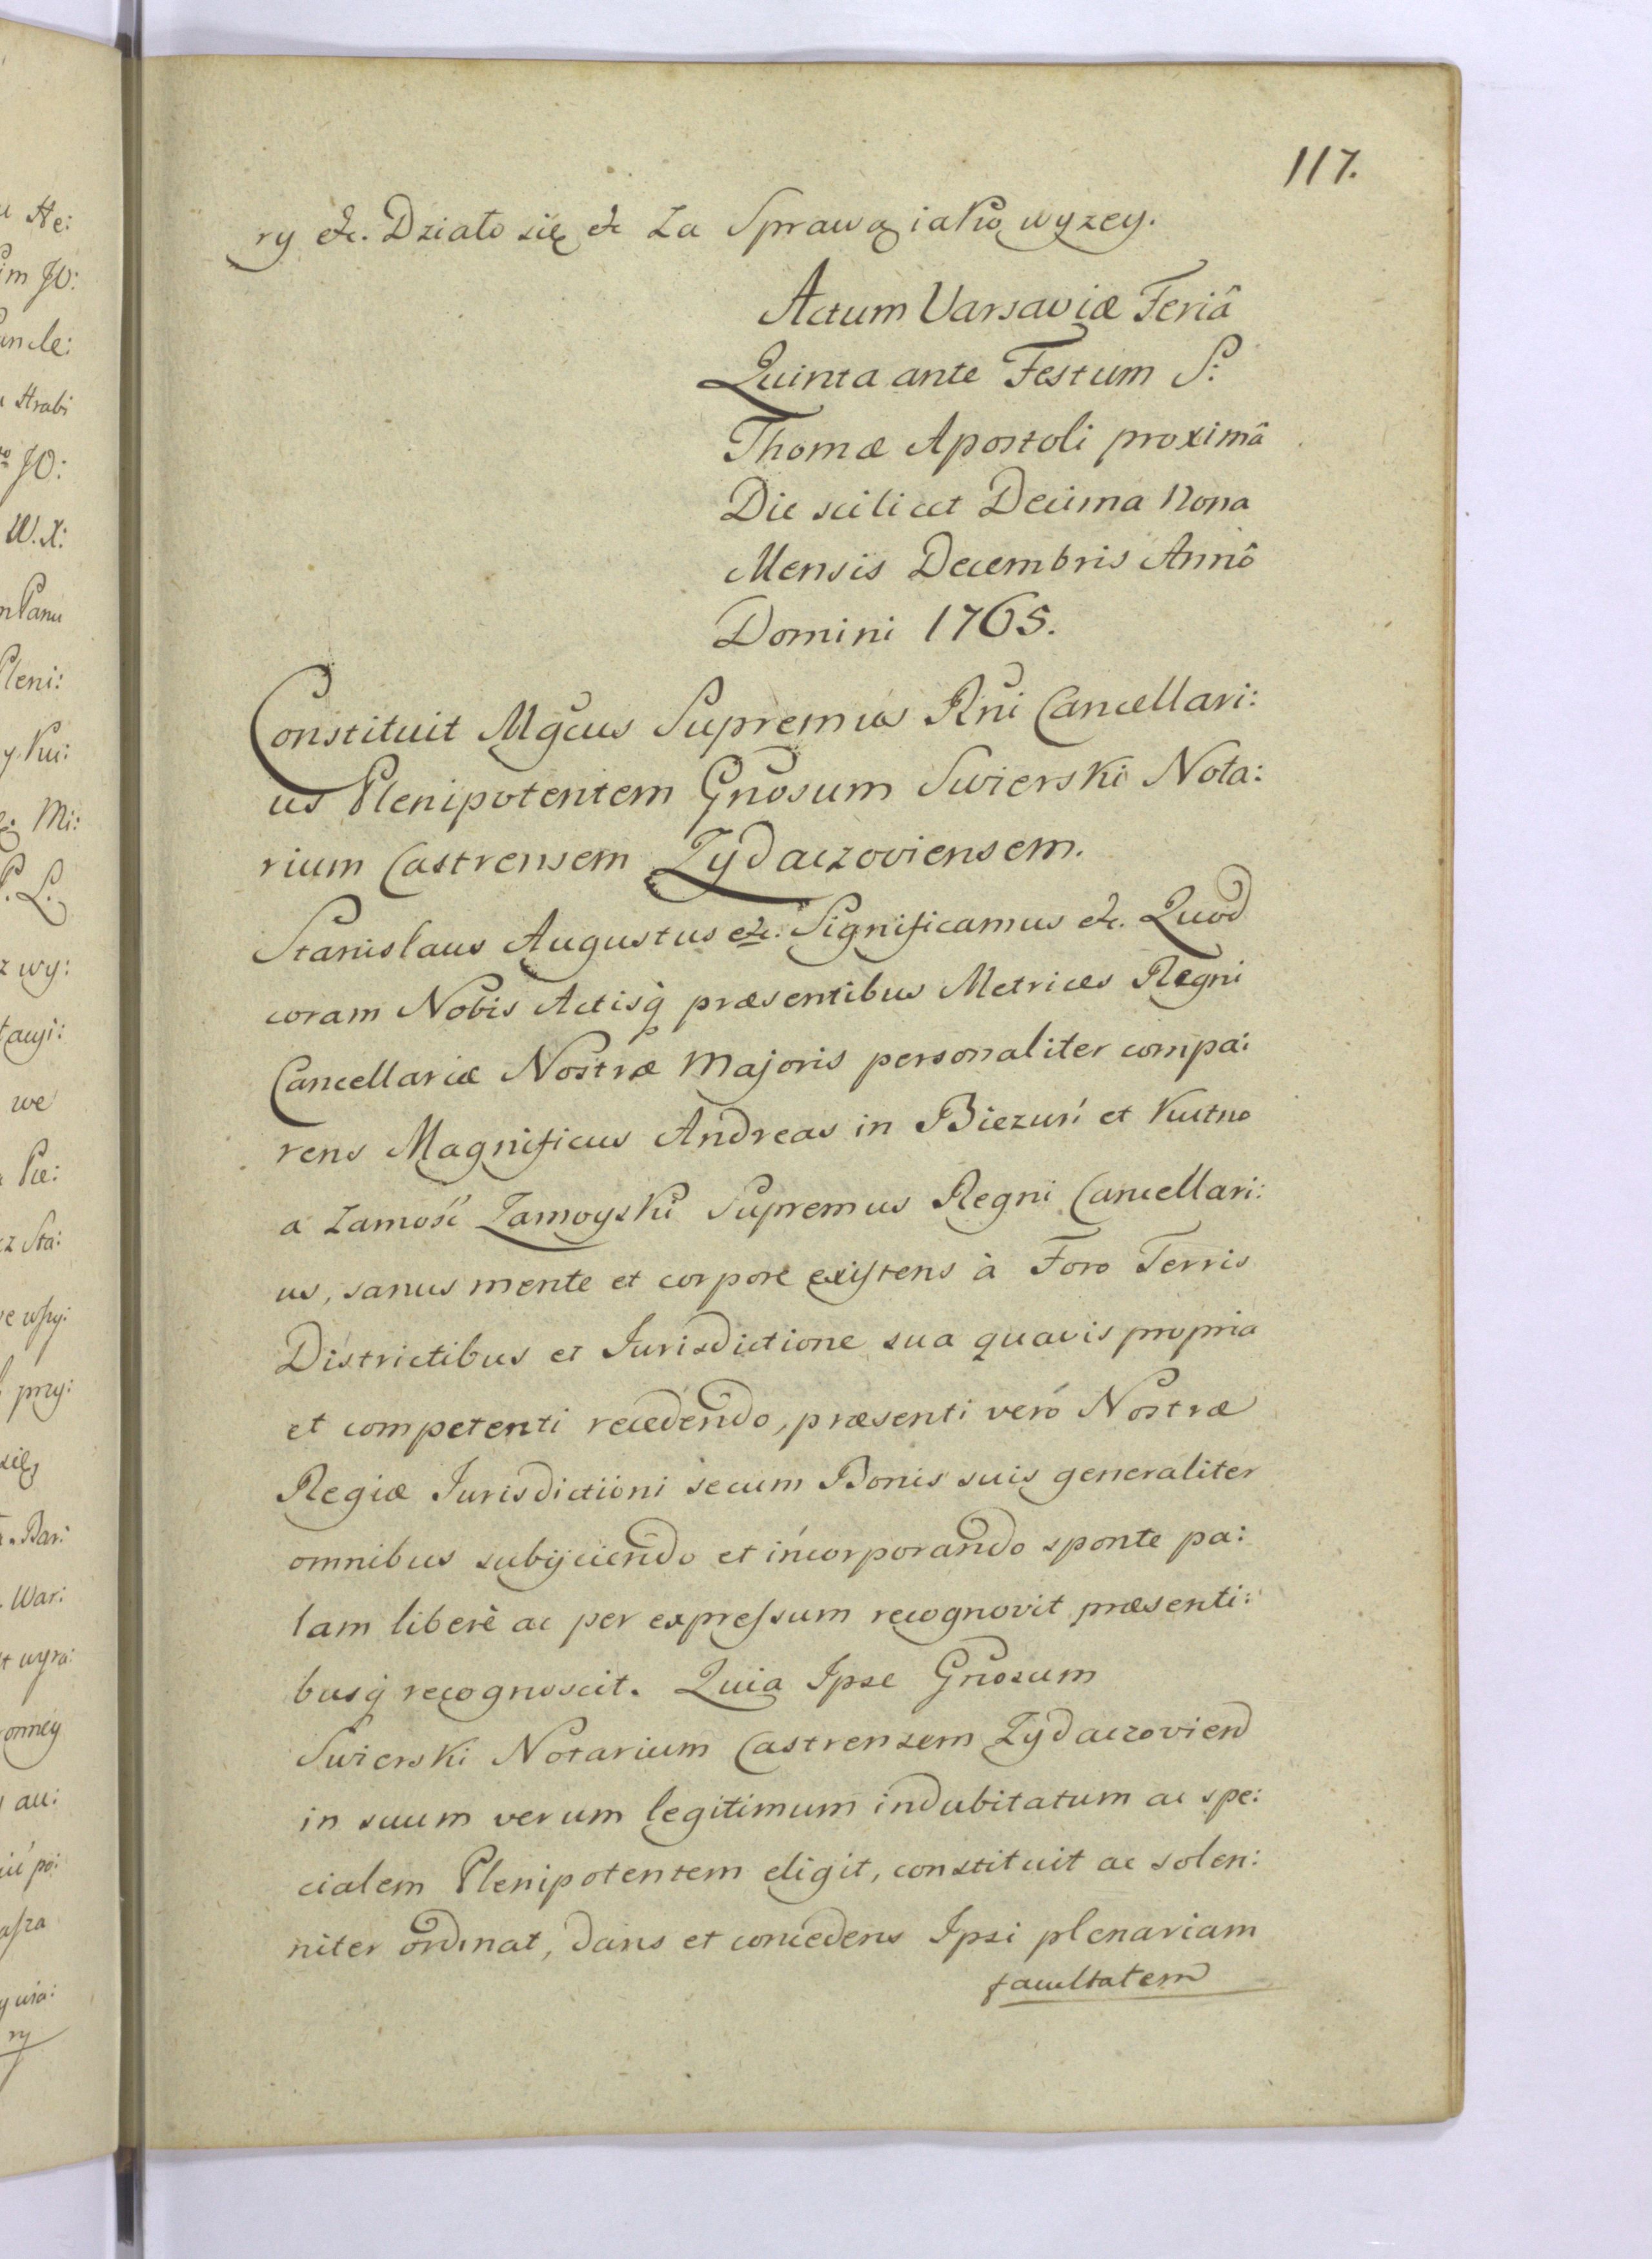 117.
ry etc. Działo się etc Za Sprawą iako wyzey.
Actum Varsaviæ Feriâ
Quinta ante Festum S:
Thomæ Apostoli proximâ
Die scilicet Decima Nona
Mensis Decembris Annô
Domini 1765.
Constituit Mgcus Supremus Rni Cancellari:
us Plenipotentem Gnosum Swierski Nota:
rium Castrensem Zydaczoviensem.
Stanislaus Augustus etc. Significamus etc. Quod
coram Nobis Actisq præsentibus Metrices Regni
Cancellariæ Nostræ Majoris personaliter compa:
rens Magnificus Andreas in Biezuń et Kutno
a Zamość Zamoyski Supremus Regni Cancellari:
us, sanus mente et corpore existens à Foro Terris
Districtibus et Iurisdictione sua quavis propria
et competenti recedendo, præsenti veró Nostræ
Regiæ Iurisdictioni secum Bonis suis generaliter
omnibus subijciendo et incorporando sponte pa:
lam liberè ac per expressum recognovit præsenti:
busq recognoscit. Quia Ipse Gnosum
Swierski Notarium Castrensem Zydaczovien
in suum verum legitimum indubitatum ac spe:
cialem Plenipotentem eligit, constituit ac solen:
niter ordinat, dans et concedens Ipsi plenariam
facultatem